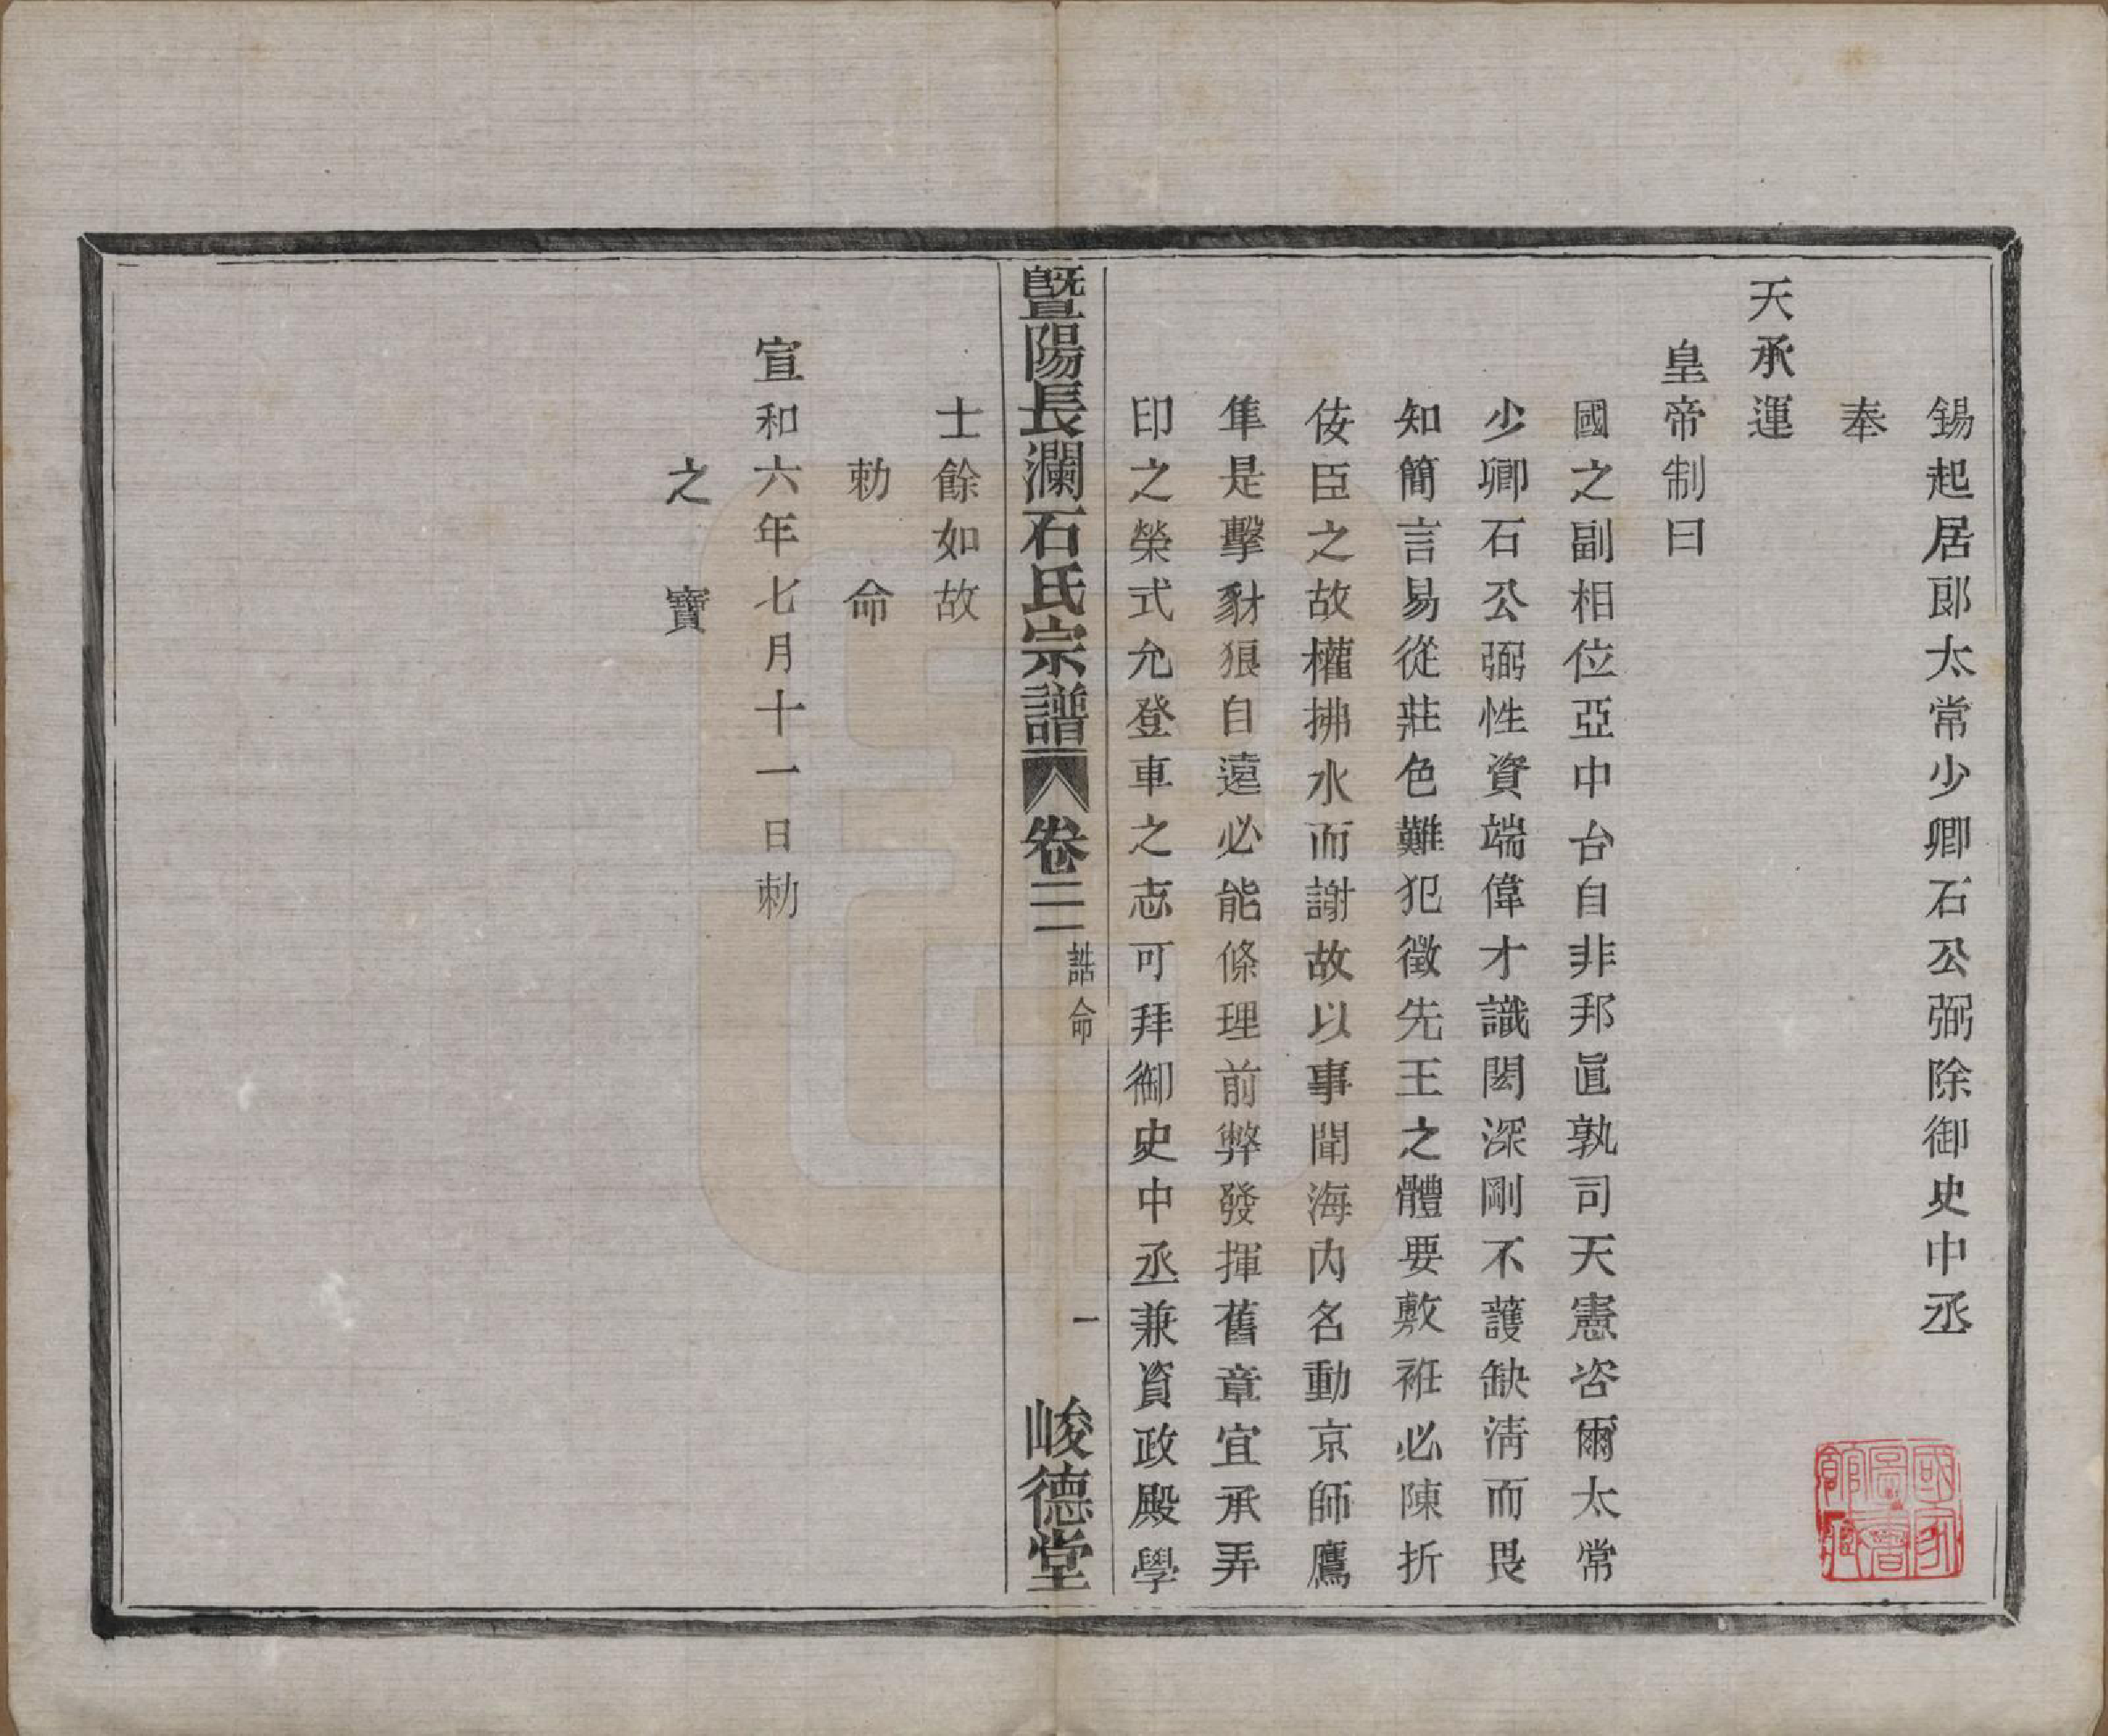 錫起居郎太常少卿石公弼除御史中丞
奉
天承運
皇帝制曰
國之副相位亞中台自非邦直孰司天憲咨爾太常
少卿石公弼性資端偉才識閎深剛不護缺淸而畏
知簡言易從莊色難犯徵先王之體要敷袵必陳折
佞臣之故權拂水而謝故以事聞海內名動京師鷹
隼是擊豺狼自遠必能條理前弊發揮舊章宜承弄
印之榮式允登車之志可拜御史中丞兼資政殿學
暨陽長瀾石氏宗譜
卷二
誥命
一
峻德堂
士餘如故
勅命
宣和六年七月十一日勅
之寶
國家圖書館藏